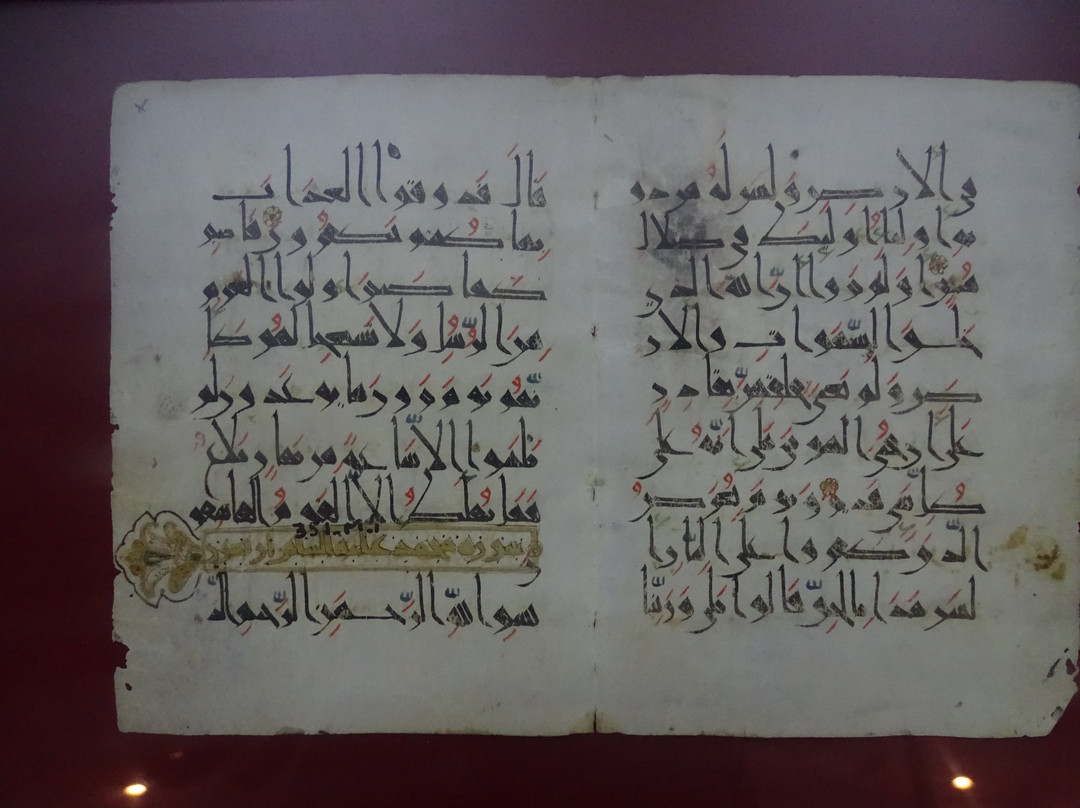 في الارض وليس له من دو
نه اوليا اوليك في ضلال
مبين اولم يروا ان الله الذي
خلق السموات والار
ض ولم يعي بخلقهن بقادر
على ان يحيي الموتى بلى انه على
كل شي قدير ويوم يعرض
الذين كفروا على النار ا
ليس هذا بالحق قالوا بلى وربنا
قال فذوقوا العذاب
بما كنتم تكفرون فاصبر
كما صبر اولوا العزم
من الرسل ولا تستعجل لهم كا
نهم يوم يرون ما يوعدون لم
يلبثوا الا ساعة من نهار بلاغ
فهل يهلك الا القوم الفاسقو
ن
سورة محمد عليه السلام
بسم الله الرحمن الرحيم الذ